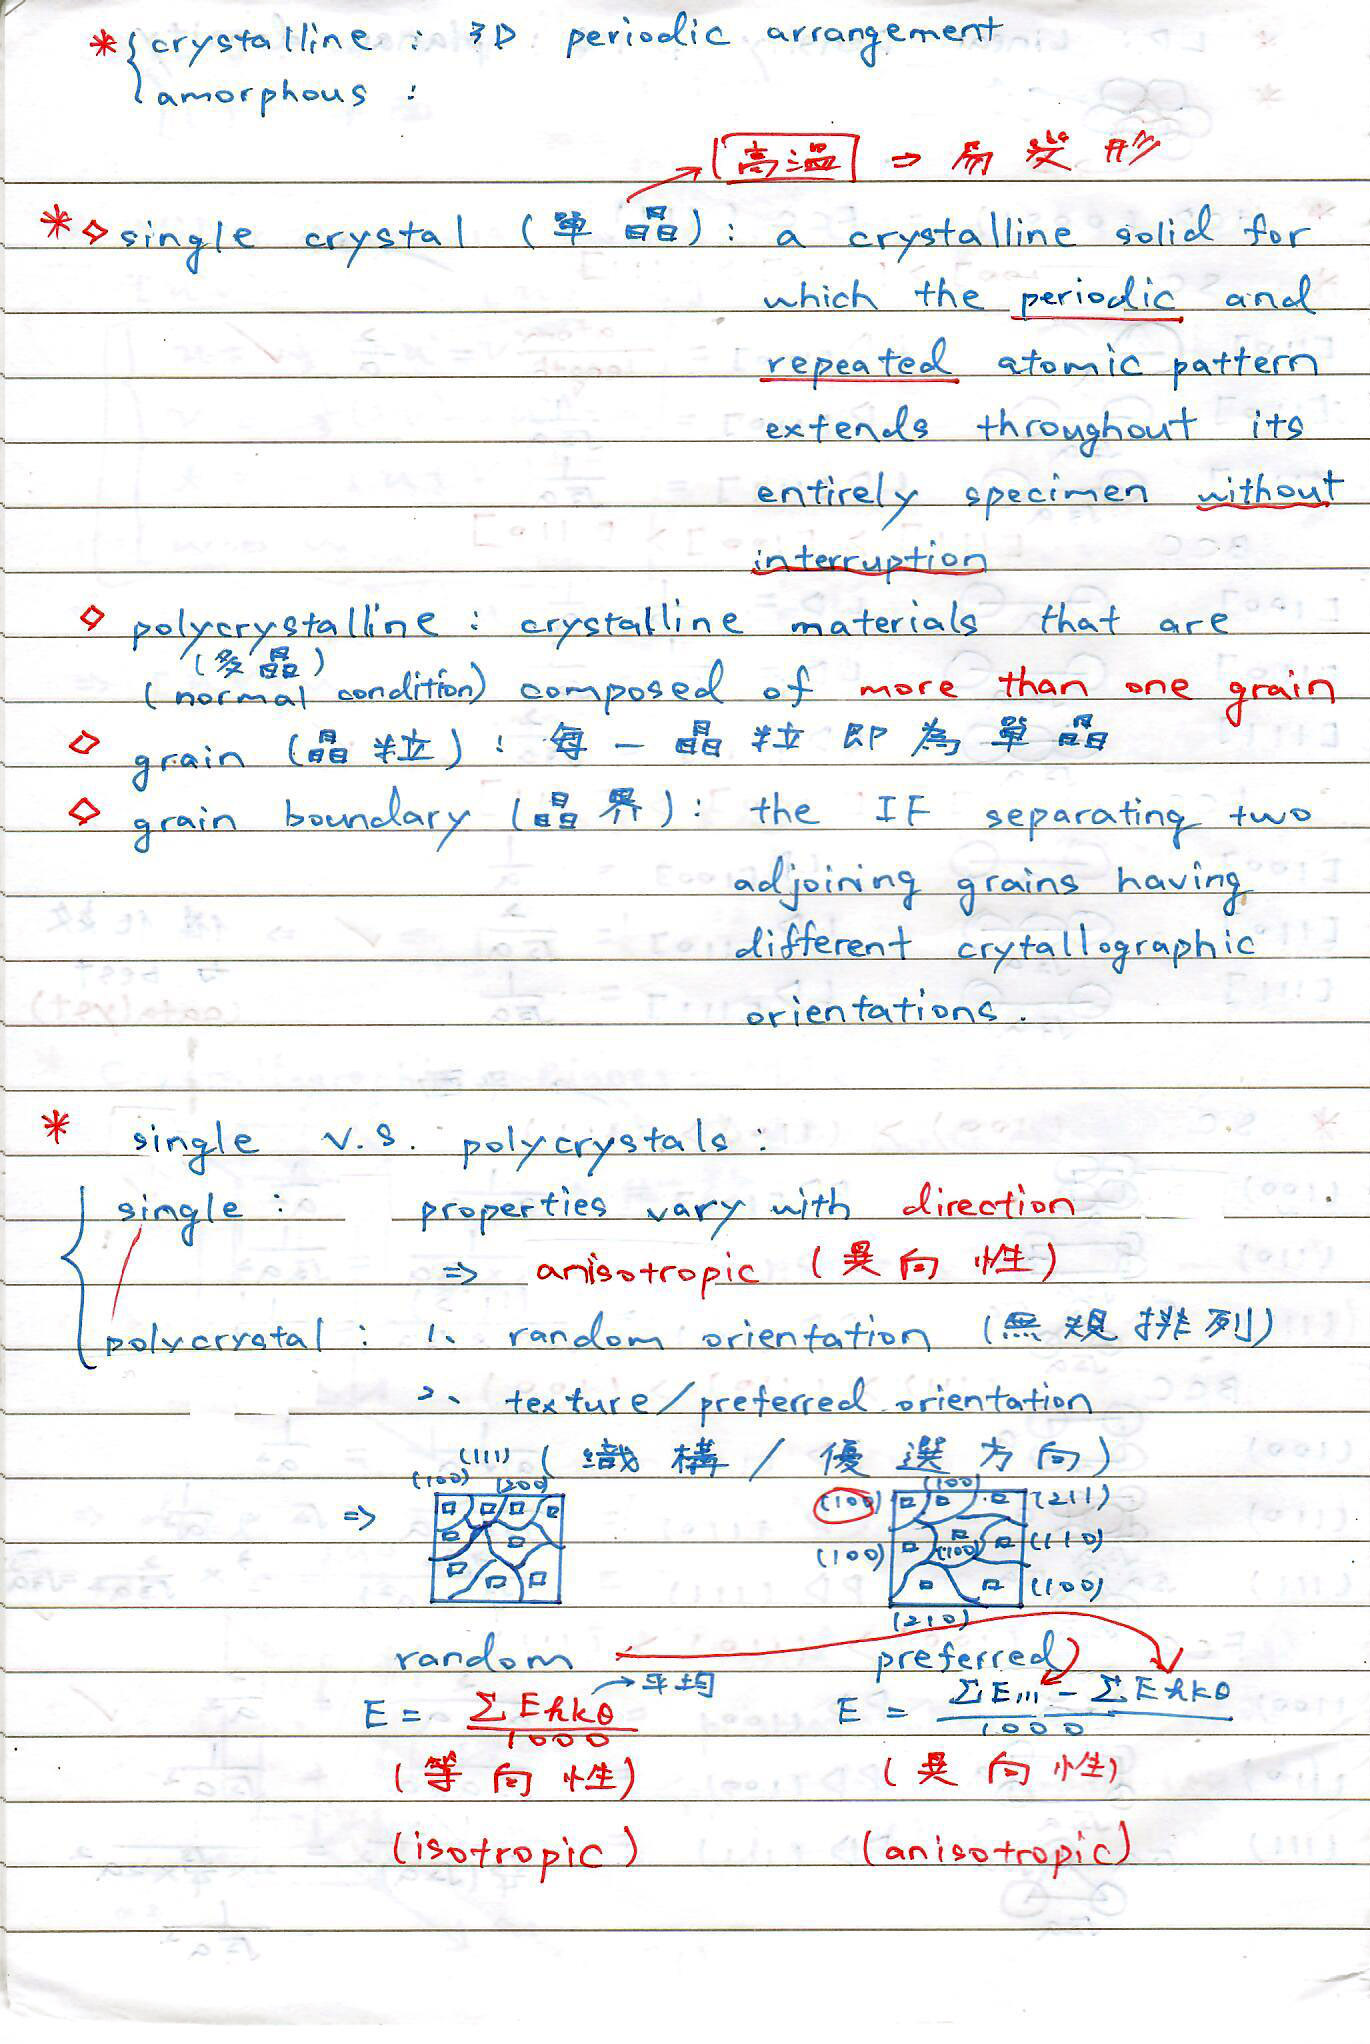 * crystalline : 3D periodic arrangement
amorphous :
高溫 ⇒ 易變形
* ◇ single crystal (單晶) : a crystalline solid for
which the periodic and
repeated atomic pattern
extends throughout its
entirely specimen without
interruption
◇ polycrystalline : crystalline materials that are
(多晶)
(normal condition) composed of more than one grain
◇ grain (晶粒) : 每一晶粒即為單晶
◇ grain boundary (晶界) : the IF separating two
adjoining grains having
different crytallographic
orientations.
* single v.s. polycrystals :
single : properties vary with direction
⇒ anisotropic (異向性)
polycrystal : 1、 random orientation (無規排列)
2、 texture/preferred orientation
(織構/優選方向)
(111)
(100) (200)
⇒
(100) (100) (211)
(100) (100) (110)
(100)
(210)
random preferred
E = ΣEhkθ/1000 → 平均 E = ΣE111 - ΣEhkθ/1000
(等向性) (異向性)
(isotropic) (anisotropic)